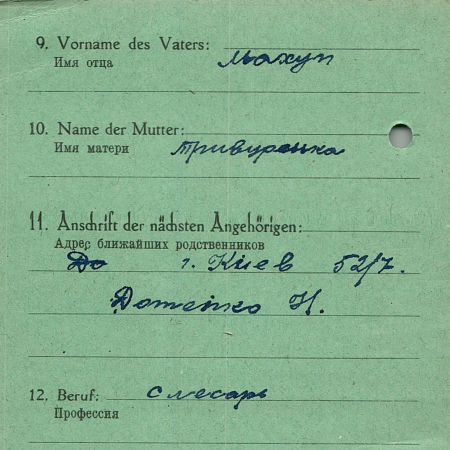 9. Vorname des Vaters: Махуп
Имя отца
10. Name der Mutter:
Имя матери
11. Anschrift der nächsten Angehörigen:
Адрес ближайших родственников
До г. Киев 52/7.
Н.
12. Beruf: слесарь
Профессия